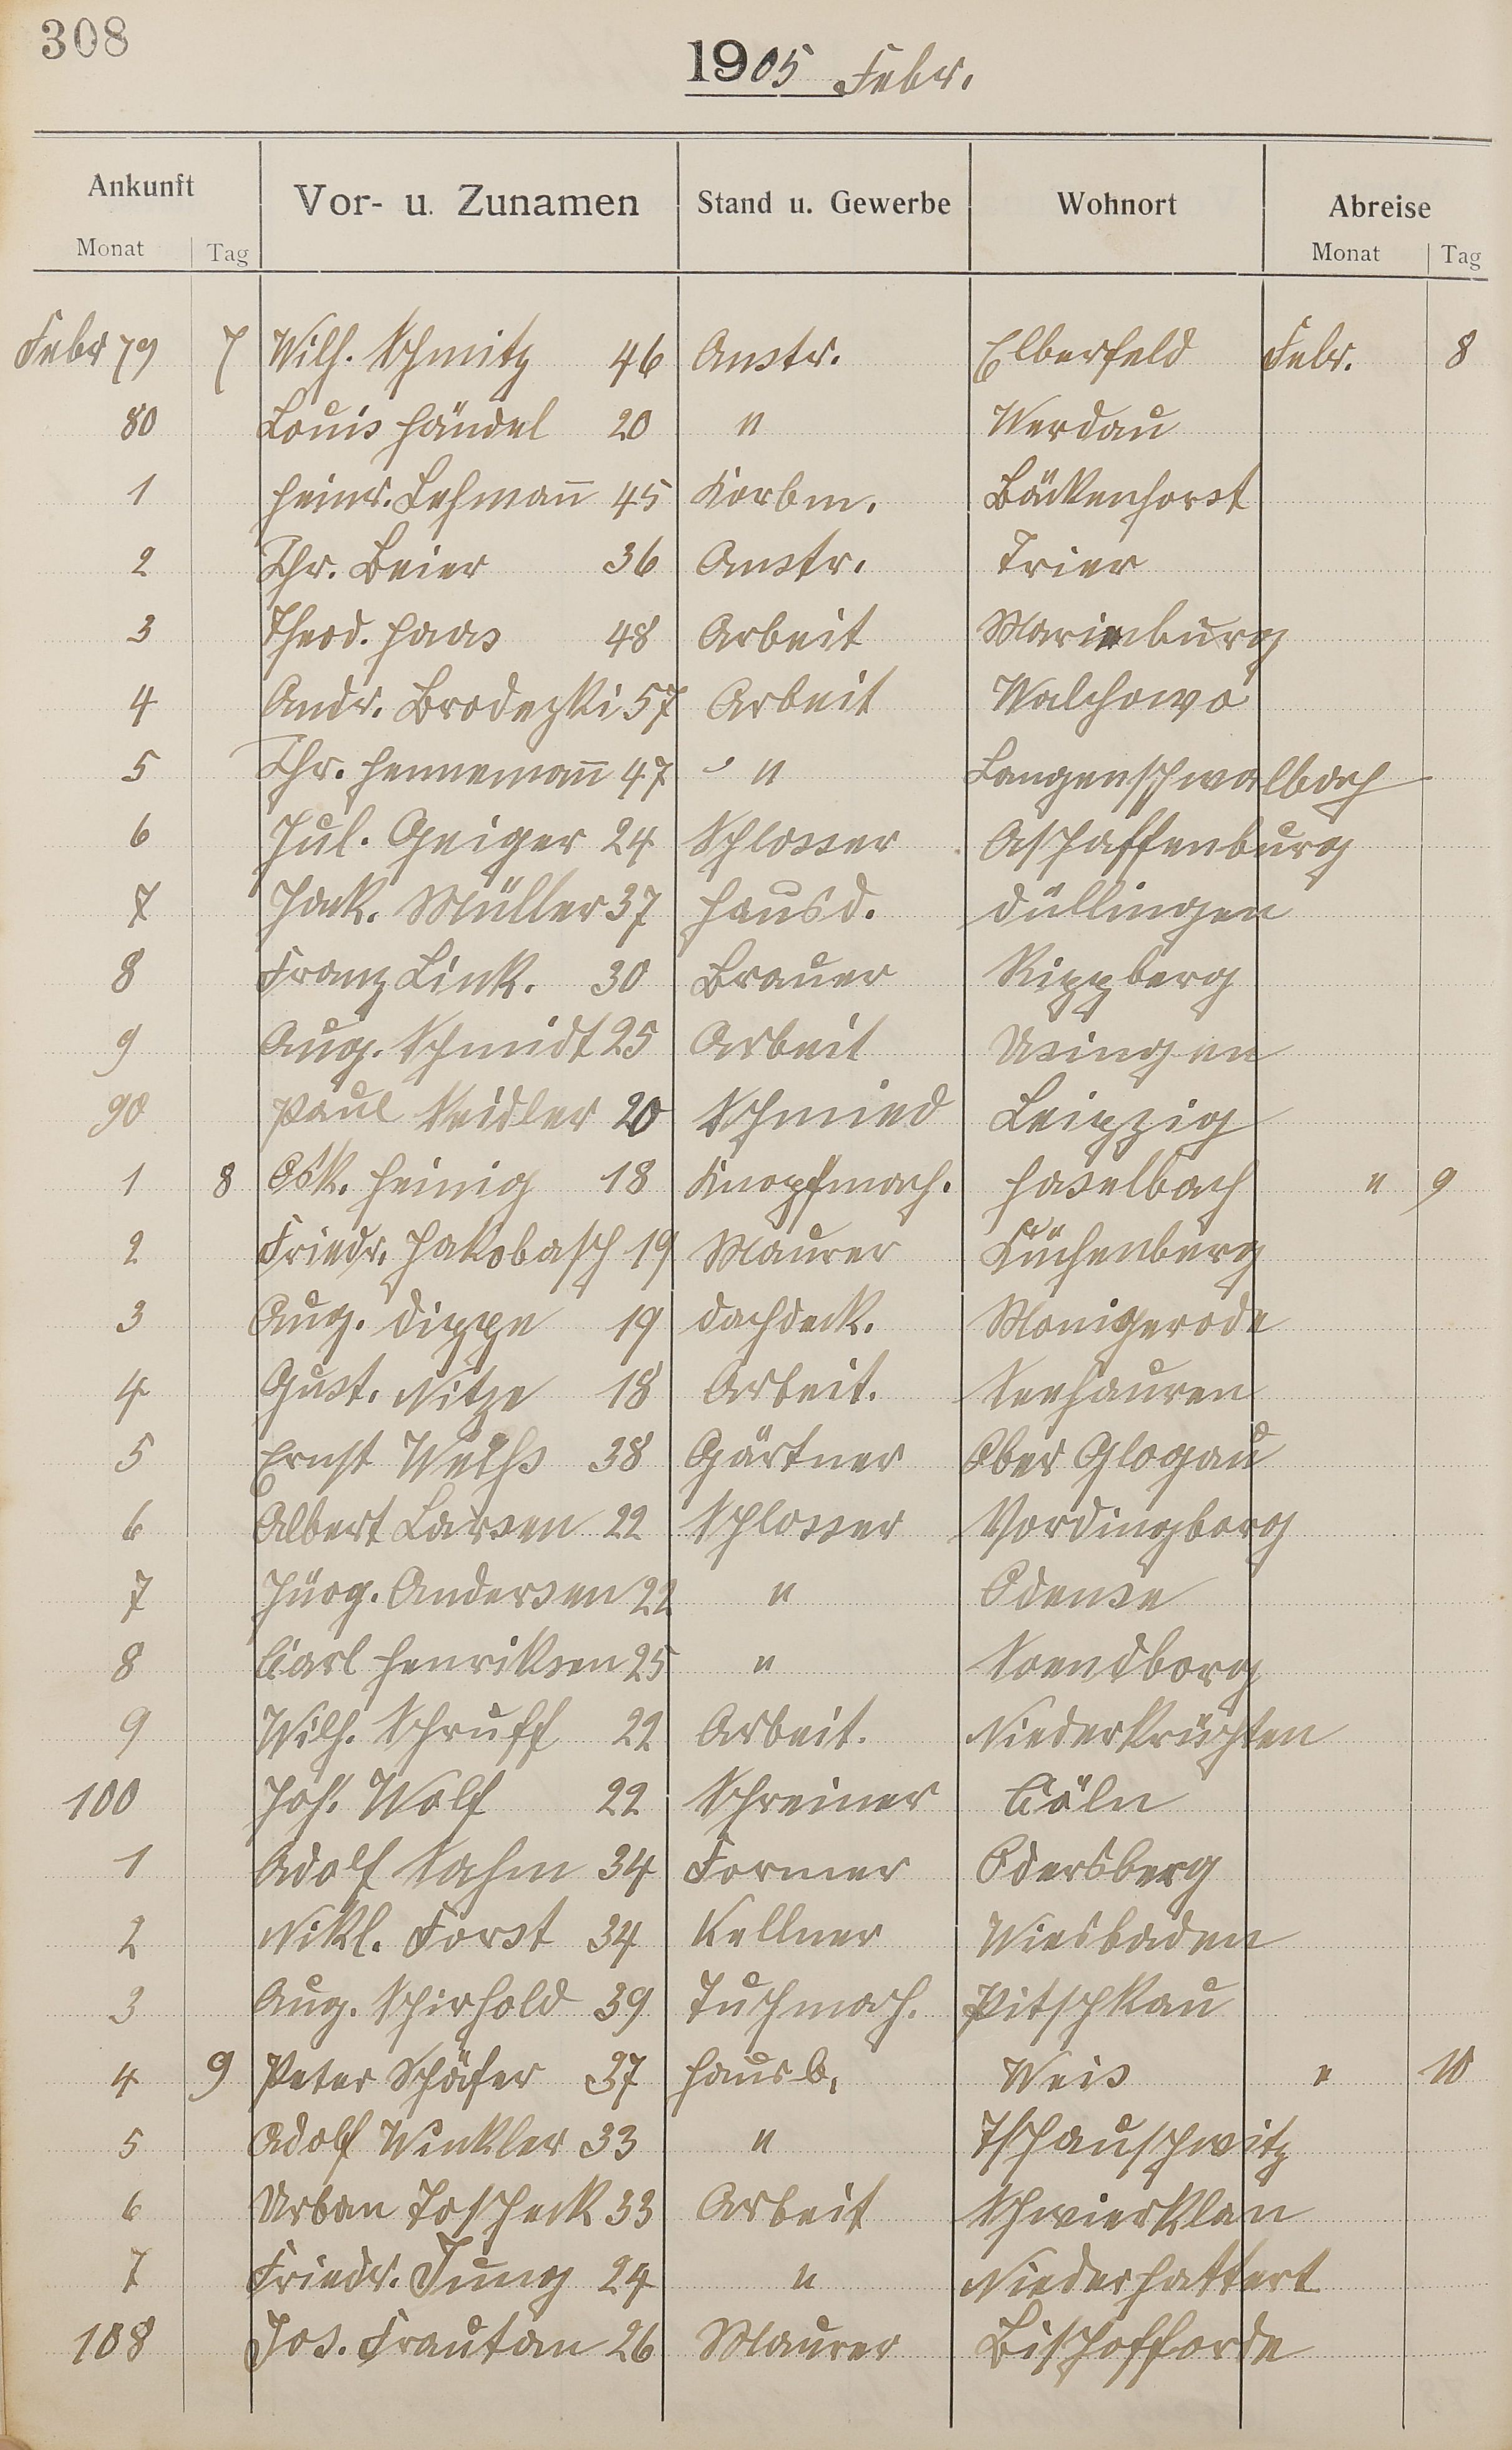 308
1905 Febr.
Ankunft Vor- u. Zunamen Stand u. Gewerbe Wohnort Abreise
Monat Tag Monat Tag
Febr 79 7 Wilh. Schmitz 46 Anstr. Elberfeld Febr. 8
80 Louis Händel 20 " Werdau
1 Heinr. Lehmann̄ 45 Korbm. Bäckenhorst
2 Chr. Beier 36 Anstr. Trier
3 Theod. Haas 48 Arbeit Marienburg
4 Andr. Brodezki 57 Arbeit Walchowo
5 Chr. Hennemann̄ 47 " Langenschwalbach
6 Jul. Geiger 24 Schlosser Aschaffenburg
7 Jak. Müller 37 Hausd. Düllingen
8 Franz Link. 30 Brauer Rippberg
9 Aug. Schmidt 25 Arbeit Usingen
90 Paul Seidler 20 Schmied Leipzig
1 8 Osk. Heinig 18 Knopfmach. Haselbach " 9
2 Friedr. Jakobasch 19 Maurer Küchenberg
3 Aug. Dippe 19 Dachdeck. Monigerode
4 Gust. Nitze 18 Arbeit. Seehausen
5 Ernst Welhs 38 Gärtner Ober Glogau
6 Albert Larsen 22 Schlosser Vordingborg
7 Jürg. Andersen 22 " Odense
8 Carl Henriksen 25 " Svendborg
9 Wilh. Schruff 22 Arbeit. Niederkrüchten
100 Joh. Wolf 22 Schreiner Cöln
1 Adolf Sahm 34 Former Odersberg
2 Nikl. Forst 34 Kellner Wiesbaden
3 Aug. Schirhold 39 Tuchmach. Pitschkau
4 9 Peter Schäfer 37 Hausb. Weis " 10
5 Adolf Winkler 33 " Tschauschwitz
6 Urban Joscheck 33 Arbeit Schwierklan
7 Friedr. Jung 24 " Niederhattert
108 Jos. Trautan 26 Maurer Bischofforde